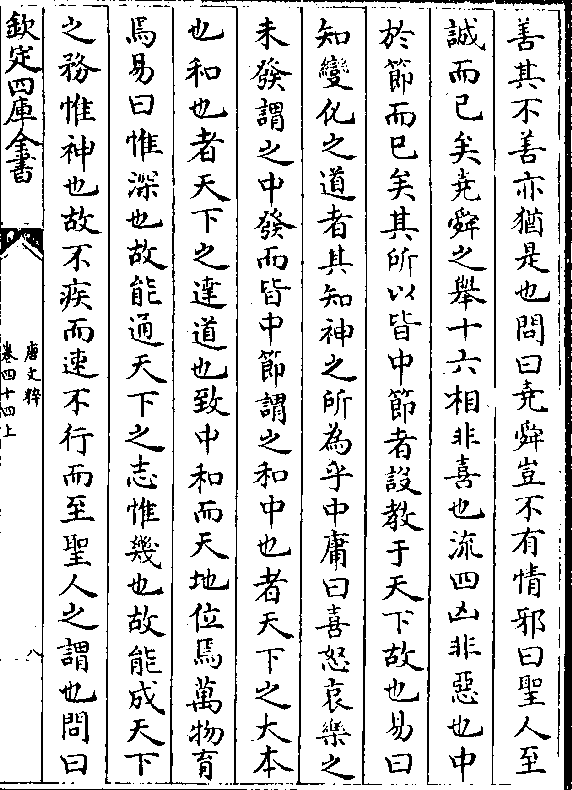 善其不善亦猶是也問曰堯舜豈不有情邪曰聖人至
誠而已矣堯舜之舉十六相非喜也流四凶非惡也中
於節而已矣其所以皆中節者設教于天下故也易曰
知變化之道者其知神之所為乎中庸曰喜怒哀樂之
未發謂之中發而皆中節謂之和中也者天下之大本
也和也者天下之達道也致中和而天地位焉萬物育
焉易曰惟深也故能通天下之志惟幾也故能成天下
之務惟神也故不疾而速不行而至聖人之謂也問曰
欽定四庫全書
唐文粹
卷四十四上
八